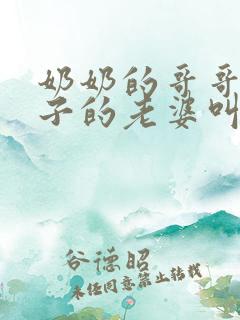 奶奶的哥哥
子的老婆叫
谷德昭
未经同意禁止转载